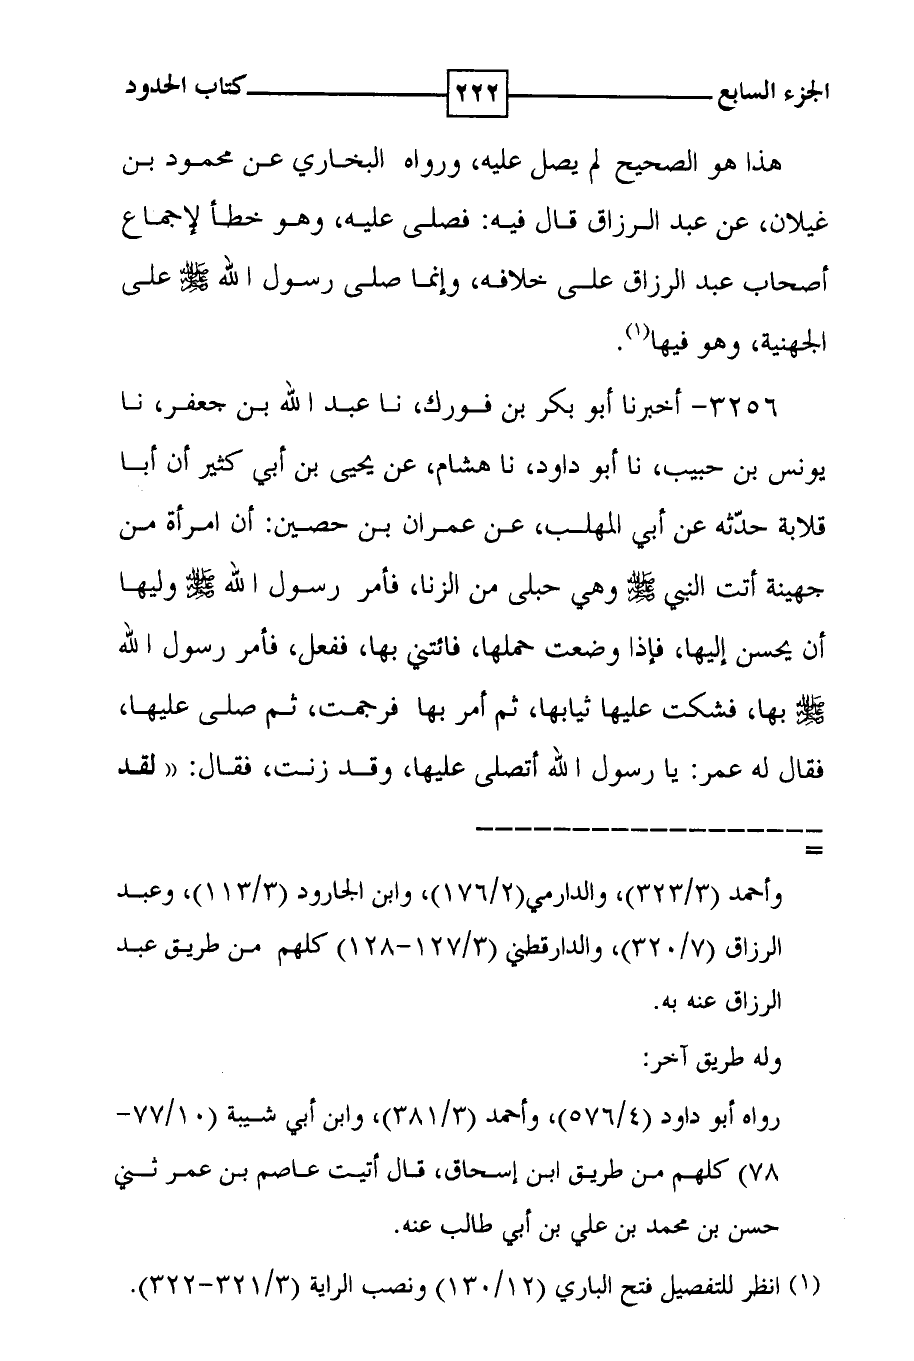 الجزء السابع ٢٢٢ كتاب الحدود
هذا هو الصحيح لم يصل عليه، ورواه البخاري عن محمود بن
غيلان، عن عبد الرزاق قال فيه: فصلى عليه، وهو خطأ لإجماع
أصحاب عبد الرزاق على خلافه، وإنما صلى رسول الله ﷺ على
الجهنية، وهو فيها(١).
٣٢٥٦- أخبرنا أبو بكر بن فورك، نا عبد الله بن جعفر، نا
يونس بن حبيب، نا أبو داود، نا هشام، عن يحيى بن أبي كثير أن أبا
قلابة حدّثه عن أبي المهلب، عن عمران بن حصين: أن امرأة من
جهينة أتت النبي ﷺ وهي حبلى من الزنا، فأمر رسول الله ﷺ وليها
أن يحسن إليها، فإذا وضعت حملها، فائتني بها، ففعل، فأمر رسول الله
ﷺ بها، فشكت عليها ثيابها، ثم أمر بها فرجمت، ثم صلى عليها،
فقال له عمر: يا رسول الله أتصلى عليها، وقد زنت، فقال: « لقد
=
وأحمد (٣٢٣/٣)، والدارمي(١٧٦/٢)، وابن الجارود (١١٣/٣)، وعبد
الرزاق (٣٢٠/٧)، والدارقطني (١٢٧/٣-١٢٨) كلهم من طريق عبد
الرزاق عنه به.
وله طريق آخر:
رواه أبو داود (٥٧٦/٤)، وأحمد (٣٨١/٣)، وابن أبي شيبة (٧٧/١٠-
٧٨) كلهم من طريق ابن إسحاق، قال أتيت عاصم بن عمر ثني
حسن بن محمد بن علي بن أبي طالب عنه.
(١) انظر للتفصيل فتح الباري (١٣٠/١٢) ونصب الراية (٣٢١/٣-٣٢٢).